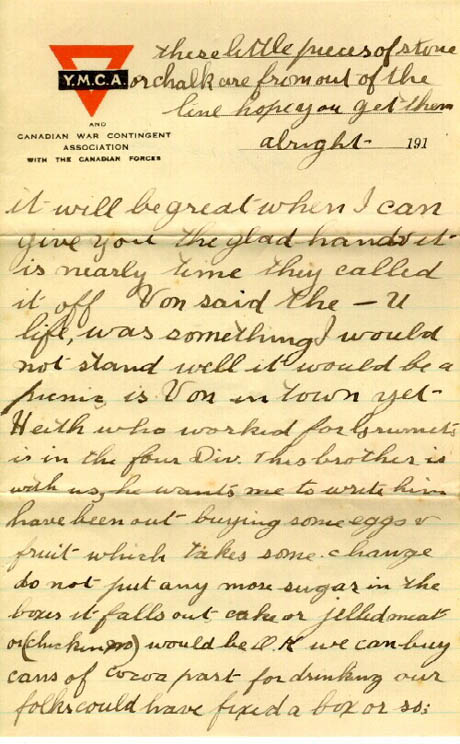 these little pieces of stone
Y.M.C.A. or chalk are from out of the
line hope you get them
alright - 191
AND
CANADIAN WAR CONTINGENT
ASSOCIATION
WITH THE CANADIAN FORCES
it will be great when I can
give you the glad hand & it
is nearly time they called
it off Von said the — U
life, was something I would
not stand well it would be a
picnic is Von in town yet -
Heith who worked for
is in the four Div. This brother is
with us, he wants me to write him
have been out buying some eggs &
fruit which takes some change
do not put any more sugar in the
boxes it falls out cake or jellied meat
or (chicken) would be O.K we can buy
cans of cocoa part for drinking our
folks could have fixed a box or so;